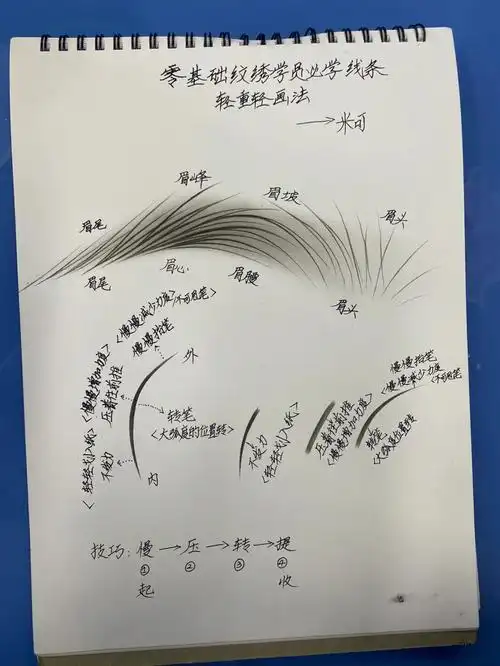 零基础纹绣学员必学线条
轻重轻画法
→米可
眉峰
眉坡
眉头
眉尾
眉尾
眉心
眉腰
眉头
<慢慢减少力度>(不可甩笔)
慢慢抬笔
<慢慢增加力度>
压着往前推
<轻轻划入纸>
不收力
外
转笔
<大弧度的位置转>
内
<轻轻划入纸>
压着往前推
<慢慢增加力度>
慢慢抬笔
<慢慢减少力度>(不可甩笔
转笔
<大弧度位置转>
技巧:慢→压→转→提
① ② ③ ④
起 收